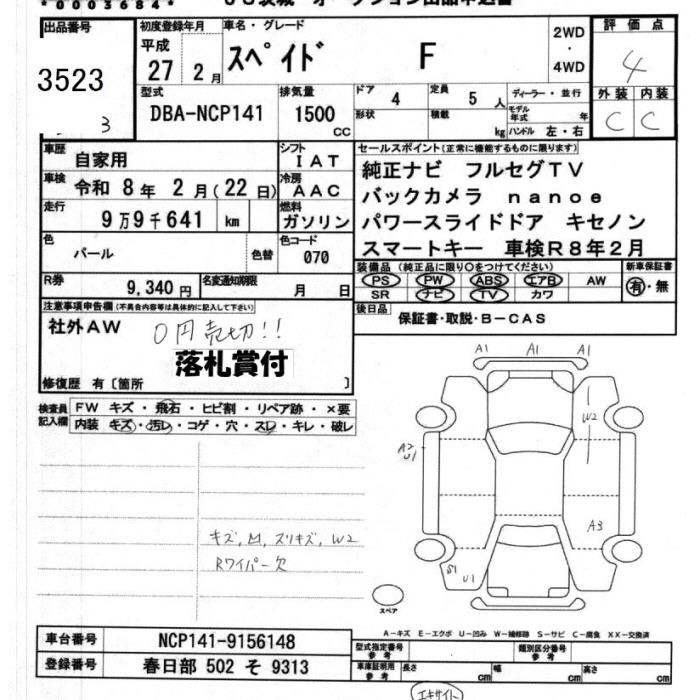 *00003684*
出品番号 初度登録年月 車名・グレード 2WD・4WD 評価点
3523 平成 27年 2月 スペイド F 4
3
型式 排気量 ドア 4 定員 5人 ディーラー・並行 外装 内装
DBA-NCP141 1500CC 形状 積載 kg モデル年式 年 ハンドル 左・右 C C
車歴 自家用 シフト IAT セールスポイント(正常に機能するものに限ります)
車検 令和 8年 2月(22日) 冷房 AAC 純正ナビ フルセグTV
走行 9万9千641 km 燃料 ガソリン バックカメラ nanoe
パワースライドドア キセノン
色 パール 色替 色コード 070 スマートキー 車検R8年2月
R券 9,340円 名変通知期限 月 日 装備品(純正品に限り○をつけてください) 新車保証書
PS PW ABS エアB AW 有・無
SR ナビ TV カワ
注意事項申告欄(不具合内容等は具体的に記入して下さい) 後日品 保証書・取説・B-CAS
社外AW 0円売切!!
落札賞付
修復歴 有〔箇所 〕
検査員記入欄 FW キズ・飛石・ヒビ割・リペア跡・×要
内装 キズ・汚レ・コゲ・穴・スレ・キレ・破レ
A1 A1 A1
W2
A2
U1
A3
キズ, M, スリキズ, W2
Rワイパー欠
S1 U1
スペア
A-キズ E-エクボ U-凹み W-補修跡 S-サビ C-腐食 XX-交換済
車台番号 NCP141-9156148 型式指定番号 参考 類別区分番号 参考
登録番号 春日部 502 そ 9313 車庫証明用 参考 長さ cm 幅 cm 高さ cm
エキサイト